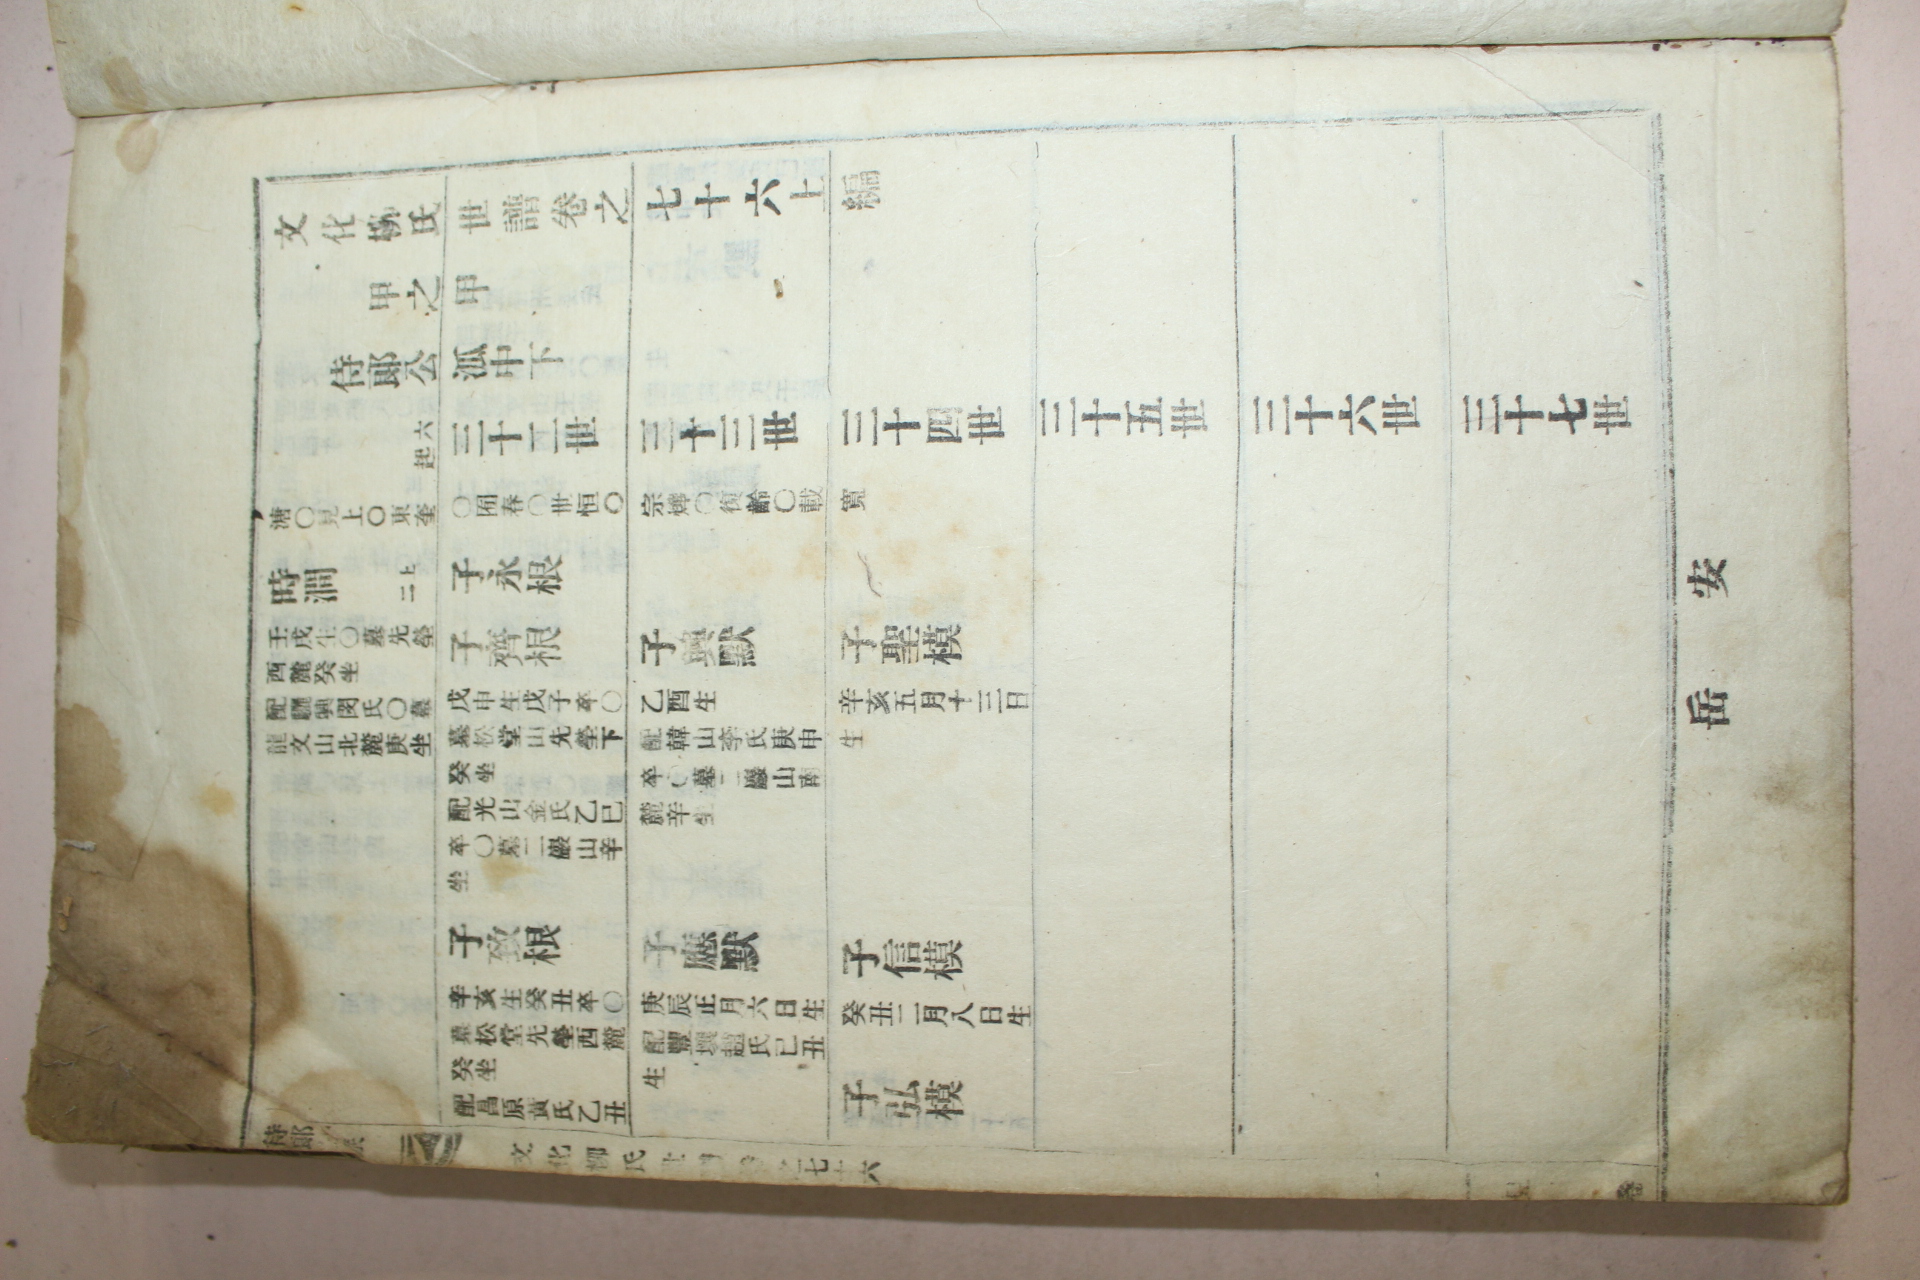 文化柳氏世譜卷之七十六上編
甲之甲
侍郞公派中下
六起
三十二世
三十三世
三十四世
三十五世
三十六世
三十七世
溏○見上○東奎○囿春○世恒○宗燁○復齡○載寬
時澗
上二
壬戌生○墓先塋
酉麓癸坐
配驪興閔氏○墓
龍文山北麓庚坐
子永根
子齊根
戊申生戊子卒○
墓松堂山先塋下
癸坐
配光山金氏乙巳
卒○墓二巖山辛
坐
子致根
辛亥生癸丑卒○
墓松堂先塋西麓
癸坐
配昌原黃氏乙丑
子興默
乙酉生
配韓山李氏庚申
卒○墓二巖山南
麓辛坐
子應默
庚辰正月六日生
配豐壤趙氏己丑
生
子聖模
辛亥五月十三日
生
子信模
癸丑二月八日生
子弘模
文化柳氏世譜卷之七十六
安岳